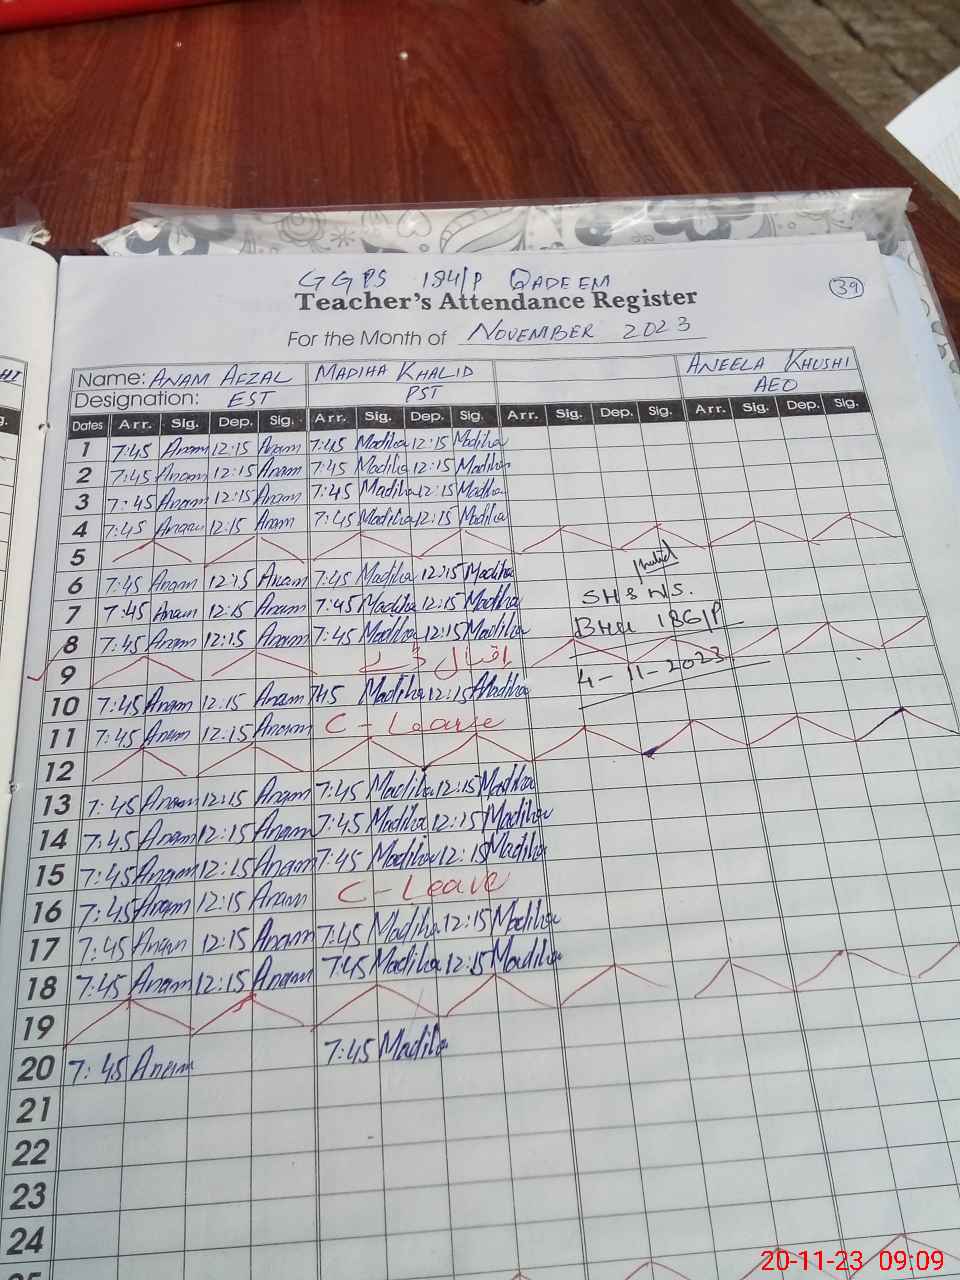 GGPS 184/P QADEEM
Teacher's Attendance Register
39
For the Month of NOVEMBER 2023
Name: ANAM AFZAL MADIHA KHALID ANEELA KHUSHI
Designation: EST PST AEO
Dates Arr. Sig. Dep. Sig. Arr. Sig. Dep. Sig. Arr. Sig. Dep. Sig. Arr. Sig. Dep. Sig.
1 7:45 Anam 12:15 Anam 7:45 Madiha 12:15 Madiha
2 7:45 Anam 12:15 Anam 7:45 Madiha 12:15 Madiha
3 7:45 Anam 12:15 Anam 7:45 Madiha 12:15 Madiha
4 7:45 Anam 12:15 Anam 7:45 Madiha 12:15 Madiha
5
6 7:45 Anam 12:15 Anam 7:45 Madiha 12:15 Madiha
SH&NS.
7 7:45 Anam 12:15 Anam 7:45 Madiha 12:15 Madiha
BHU 186/P
8 7:45 Anam 12:15 Anam 7:45 Madiha 12:15 Madiha
4-11-2023
9 اقبال ڈے
10 7:45 Anam 12:15 Anam 7:45 Madiha 12:15 Madiha
11 7:45 Anam 12:15 Anam C-Leave
12
13 7:45 Anam 12:15 Anam 7:45 Madiha 12:15 Madiha
14 7:45 Anam 12:15 Anam 7:45 Madiha 12:15 Madiha
15 7:45 Anam 12:15 Anam 7:45 Madiha 12:15 Madiha
16 7:45 Anam 12:15 Anam C-Leave
17 7:45 Anam 12:15 Anam 7:45 Madiha 12:15 Madiha
18 7:45 Anam 12:15 Anam 7:45 Madiha 12:15 Madiha
19
20 7:45 Anam 7:45 Madiha
21
22
23
24
20-11-23 09:09